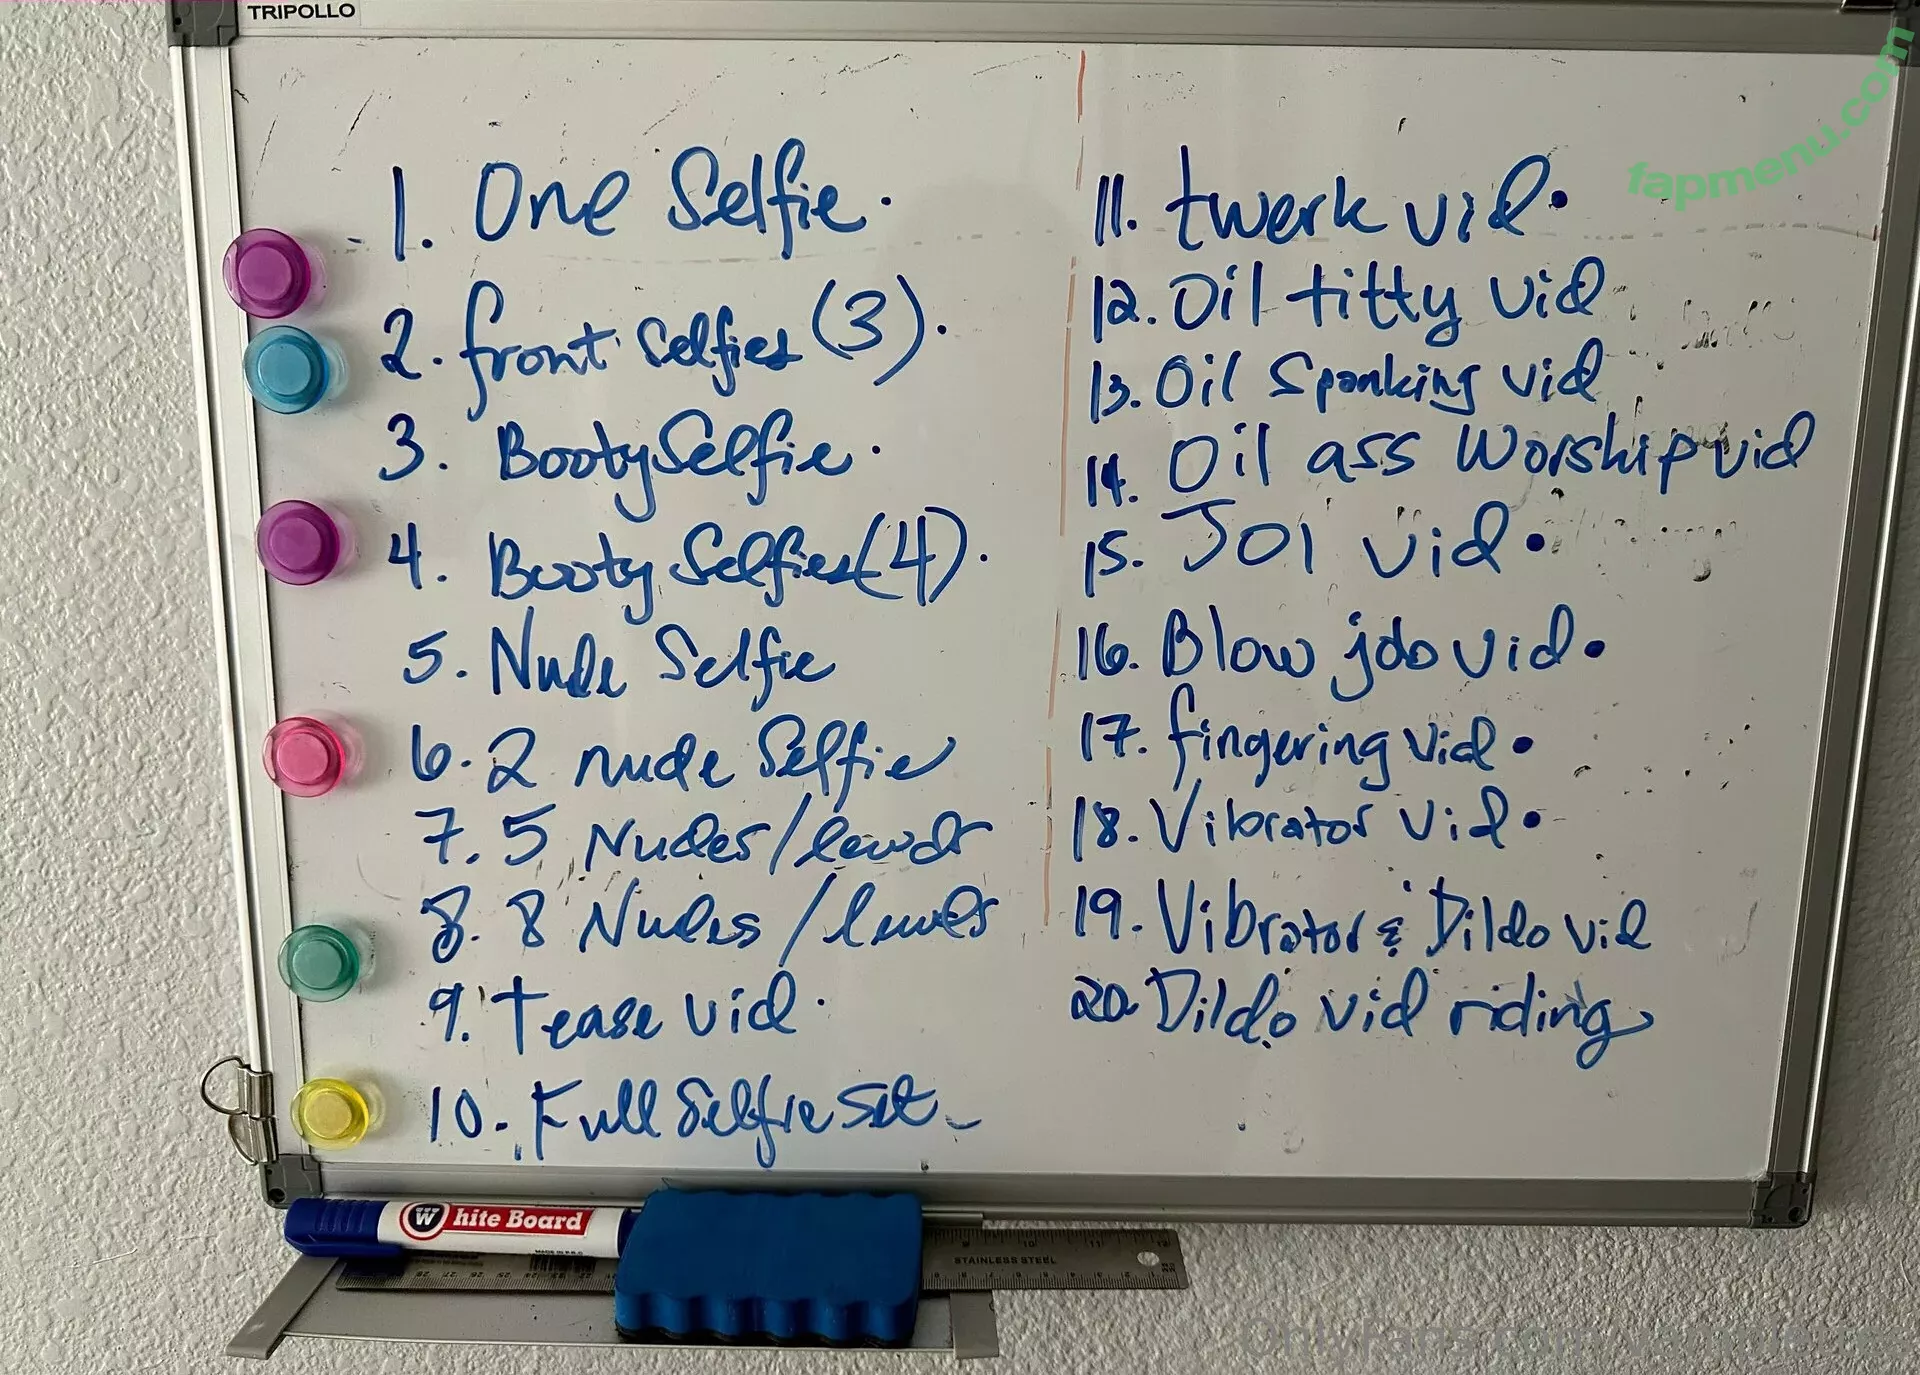 TRIPOLLO
fapmenu.com
1. One Selfie.
2. front selfies (3).
3. Booty Selfie.
4. Booty Selfies (4).
5. Nude Selfie
6. 2 nude Selfie
7. 5 Nudes/lewds
8. 8 Nudes/lewds
9. Tease vid.
10. Full Selfie Set
11. twerk vid.
12. Oil titty vid
13. Oil Spanking vid
14. Oil ass worship vid
15. JOI vid.
16. Blow job vid.
17. fingering vid.
18. Vibrator vid.
19. Vibrator & Dildo vid
20. Dildo vid riding
White Board
MADE IN P.R.C
STAINLESS STEEL